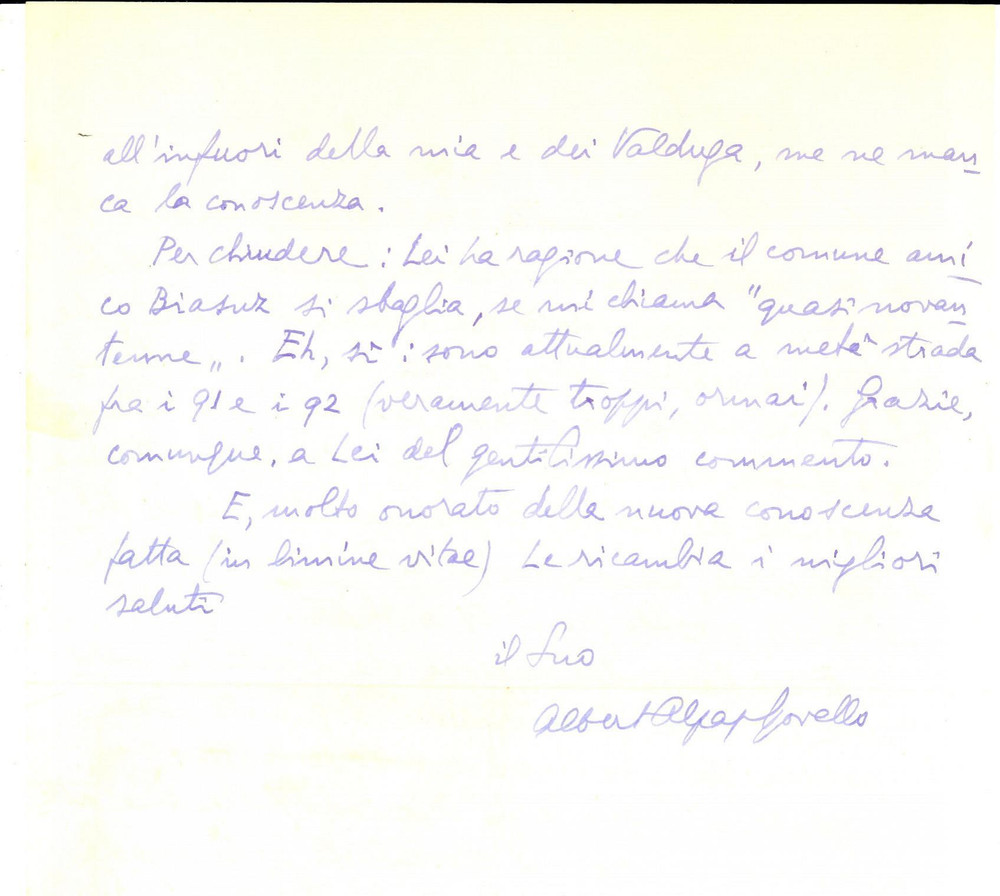 all'infuori della mia e dei Valduga, me ne man
ca la conoscenza.
Per chiudere: Lei ha ragione che il comune ami
co Biasuz si sbaglia, se mi chiama "quasi novan
tenne„. Eh, sì: sono attualmente a metà strada
fra i 91 e i 92 (veramente troppi, ormai). Grazie,
comunque, a Lei del gentilissimo commento.
E, molto onorato della nuova conoscenza
fatta (in limine vitae) Le ricambia i migliori
saluti
il Suo
Alberto Alpago Novello